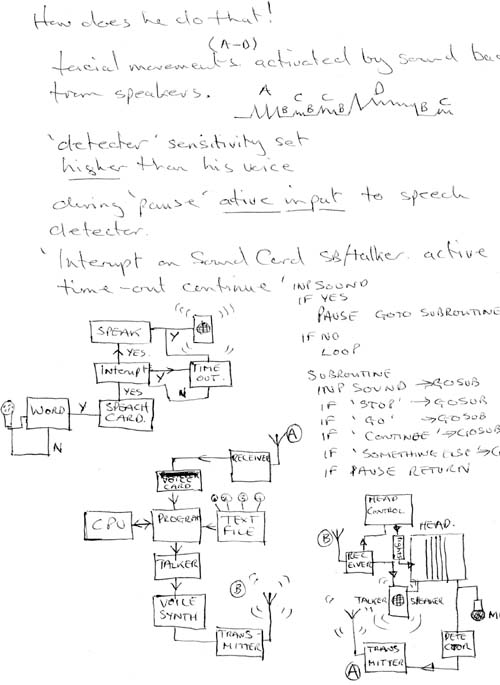 How does he do that!
(A-D)
facial movements activated by sound bac
from speakers.
A C C D
B B B B C
'detecter' sensitivity set
higher than his voice
during 'pause' ative input to speech
detector.
'Interupt on Sound Card SB/talker. active
time-out continue'
INP SOUND
IF YES
PAUSE GOTO SUBROUTINE
IF NO
LOOP
SUBROUTINE
INP SOUND → GOSUB
IF 'STOP' → GOSUB
IF 'GO' → GOSUB
IF 'CONTINUE' → GOSUB
IF 'SOMETHING ELSE' → G
IF PAUSE RETURN
SPEAK
Y
YES.
INTERUPT
Y
TIME
OUT.
YES
N
WORD
Y
SPEACH
CARD.
N
RECEIVER
A
VOICE
CARD
CPU
PROGRAM
TEXT
FILE
TALKER
B
VOICE
SYNTH
TRANS-
MITTER
HEAD
CONTROL
HEAD.
B
REC
EIVER
LIGHTS
TALKER
SPEAKER
M
DETE
CTOR
A
TRANS
MITTER